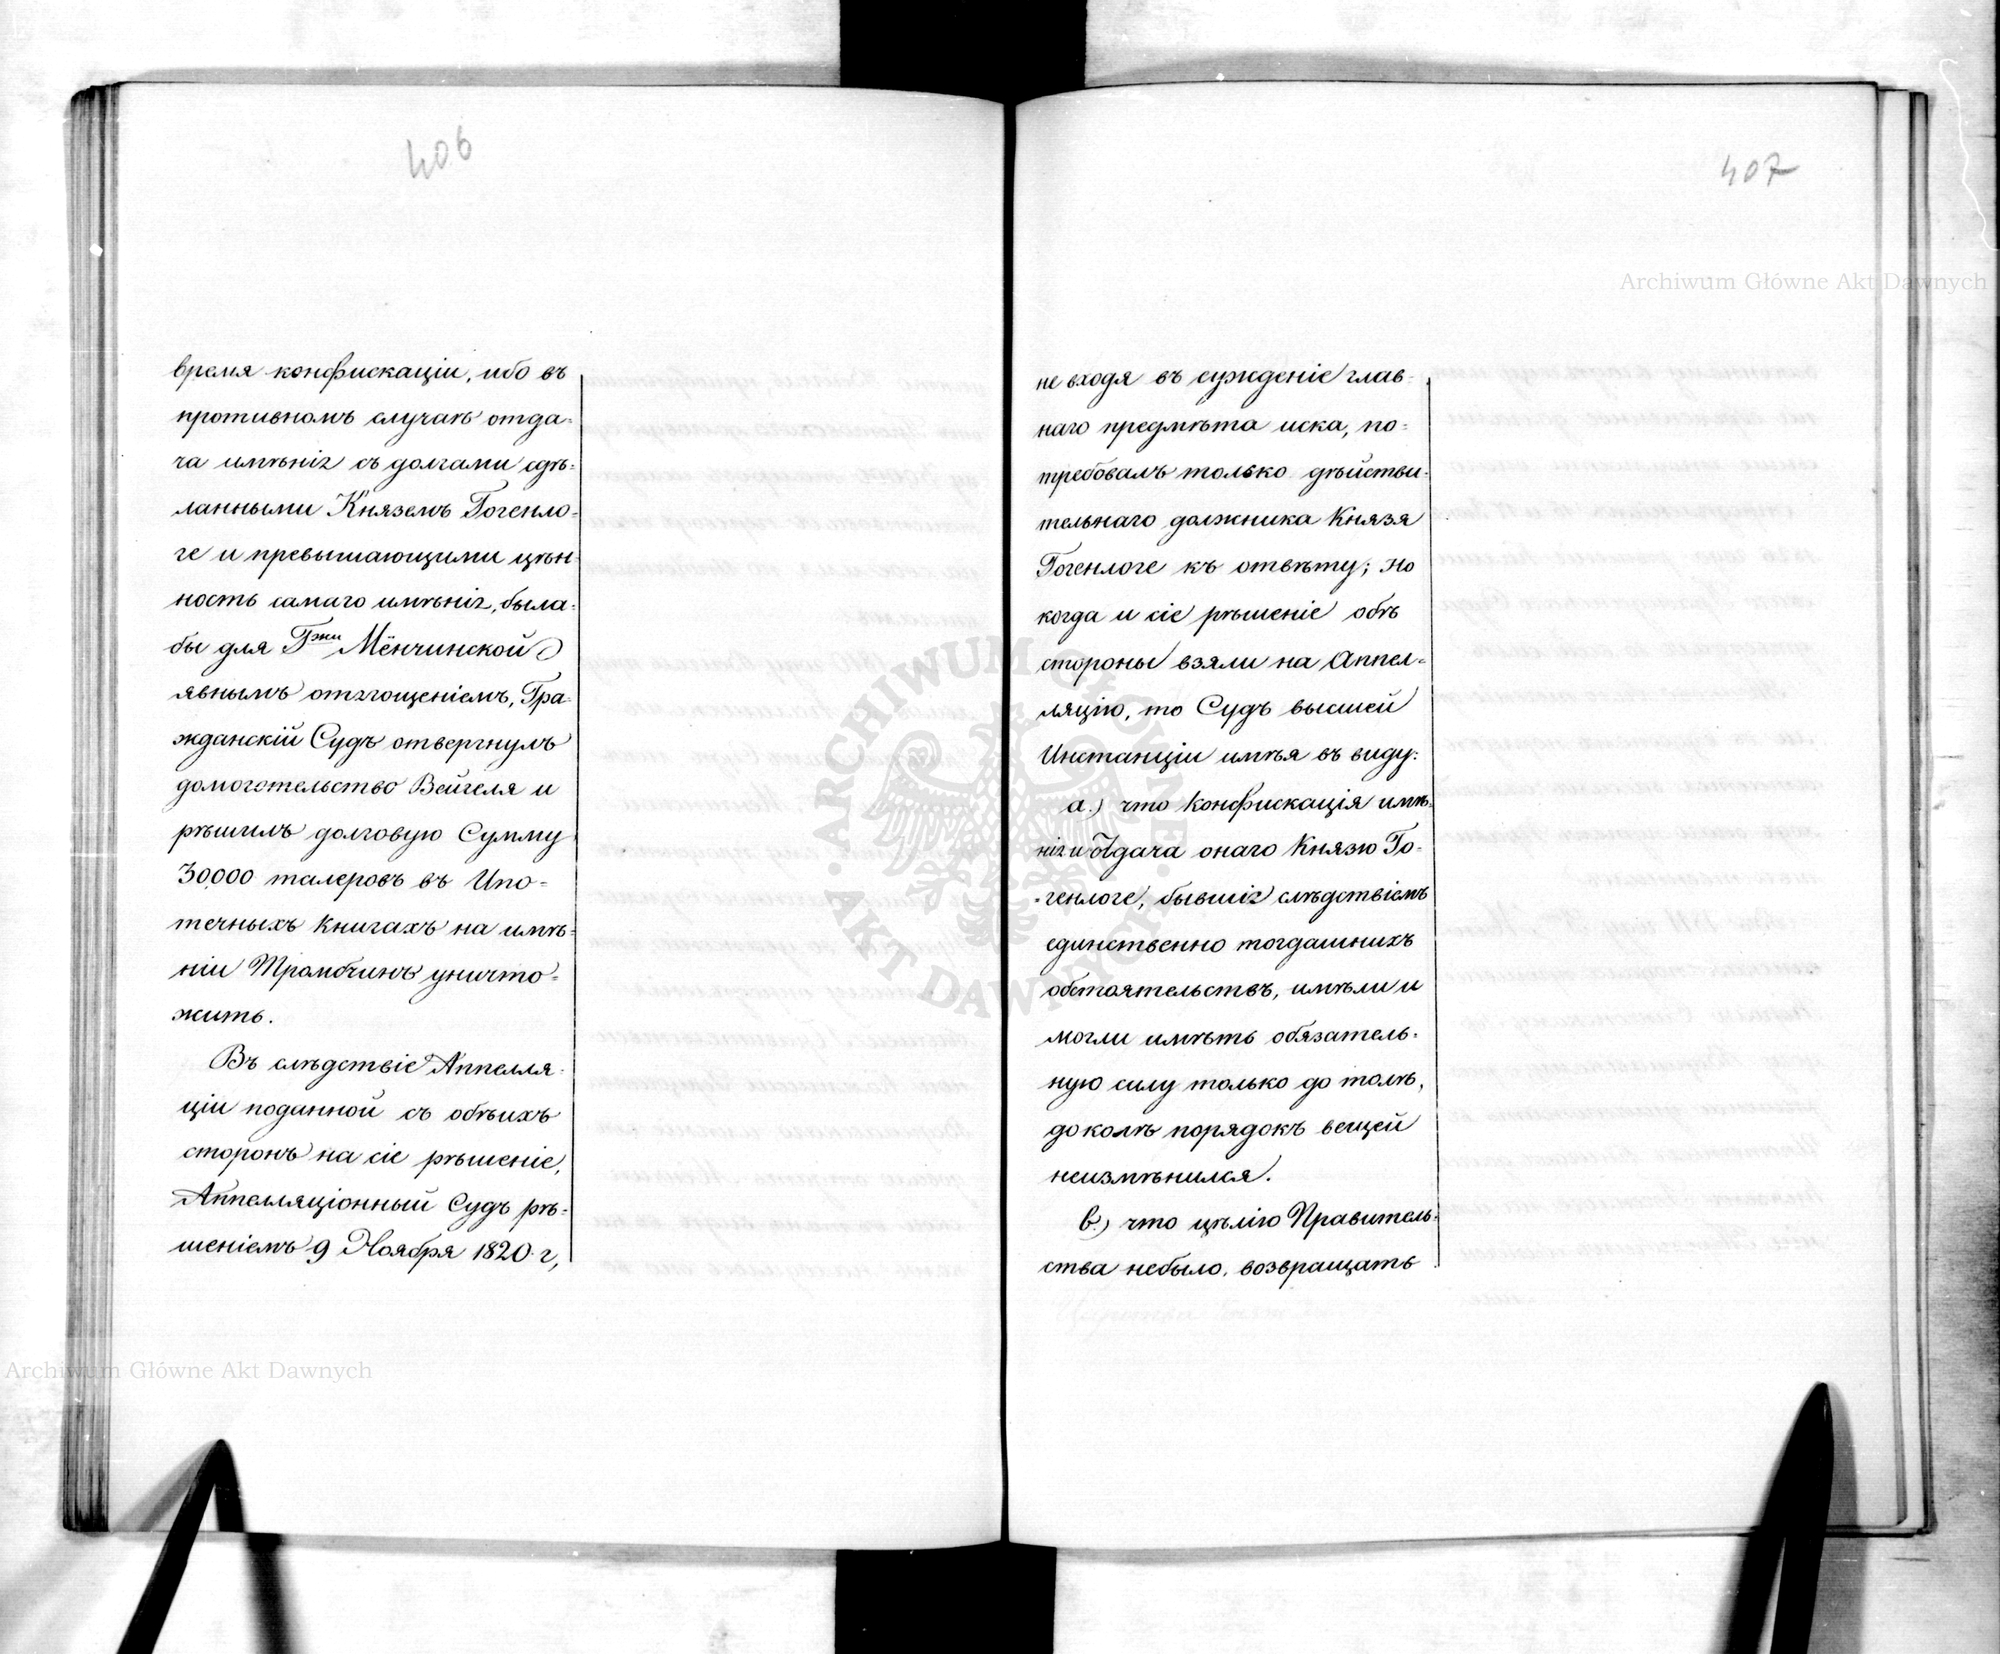 406
время конфискаціи, ибо въ
противномъ случаѣ отда=
ча имѣнія съ долгами сдѣ=
ланными Княземъ Гогенло=
ге и превышающими цѣн=
ность самаго имѣнія, была=
бы для Гжи Мёнчинской
явнымъ отягощеніемъ, Гра=
жданскій Судъ отвергнулъ
домогательство Вейгеля и
рѣшилъ долговую Сумму
30,000 талеровъ въ Ипо=
течныхъ Книгахъ на имѣ=
ніи Тромбчинъ уничто=
жить.
Въ слѣдствіе Аппелля=
ціи поданной съ обѣихъ
сторонъ на сіе рѣшеніе,
Аппелляціонный Судъ рѣ=
шеніемъ 9 Ноября 1820 г,
407
не входя въ сужденіе глав=
наго предмѣта иска, по=
требовалъ только дѣйстви=
тельнаго должника Князя
Гогенлоге къ отвѣту; но
когда и сіе рѣшеніе обѣ
стороны взяли на Аппел=
ляцію, то Судъ высшей
Инстанціи имѣя въ виду:
а.) что Конфискація имѣ=
нія и отдача онаго Князю Го=
=генлоге, бывшія слѣдствіемъ
единственно тогдашнихъ
обстоятельствъ, имѣли и
могли имѣть обязатель=
ную силу только до толѣ,
доколѣ порядокъ вещей
неизмѣнился.
в.) что цѣлію Правитель=
ства небыло, возвращать
Archiwum Główne Akt Dawnych
Archiwum Główne Akt Dawnych
ARCHIWUM GŁÓWNE AKT DAWNYCH